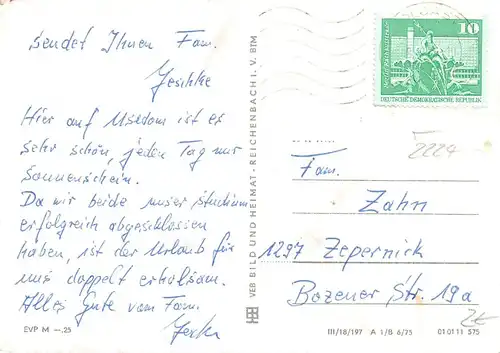 sendet Ihnen Fam.
Jeschke
Hier auf Usedom ist es
sehr schön, jeden Tag nur
Sonnenschein.
Da wir beide unser Studium
erfolgreich abgeschlossen
haben, ist der Urlaub für
uns doppelt erholsam.
Alles Gute vom Fam.
EVP M —.25
VEB BILD UND HEIMAT · REICHENBACH I. V. BTM
10
DEUTSCHE DEMOKRATISCHE REPUBLIK
2224
Fam.
Zahn
1297 Zepernick
Bozener Str. 19a
III/18/197 A 1/B 6/75 01 01 11 575